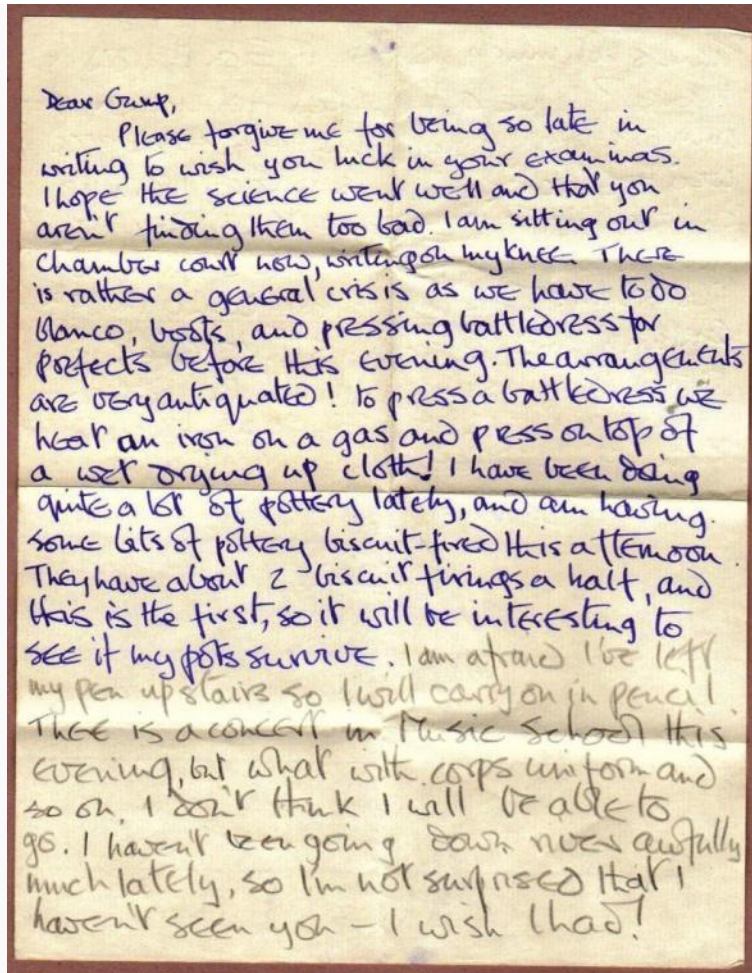 Dear Gump,
Please forgive me for being so late in
writing to wish you luck in your examinas.
I hope the science went well and that you
aren't finding them too bad. I am sitting out in
Chamber court now, writing on my knee. There
is rather a general crisis as we have to do
blanco, boots, and pressing battledress for
prefects before this evening. The arrangements
are very antiquated! To press a battledress we
heat an iron on a gas and press on top of
a wet drying up cloth! I have been doing
quite a lot of pottery lately, and am having
some bits of pottery biscuit-fired this afternoon.
They have about 2 biscuit firings a half, and
this is the first, so it will be interesting to
see if my pots survive. I am afraid I've left
my pen upstairs so I will carry on in pencil.
There is a concert in Music School this
evening, but what with corps uniform and
so on, I don't think I will be able to
go. I haven't been going down river awfully
much lately, so I'm not surprised that I
haven't seen you – I wish I had!